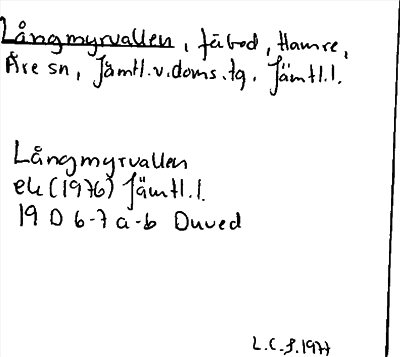 Långmyrvallen, fäbod, Hamre,
Åre sn, Jämtl.v.doms.tg. Jämtl.l.
Långmyrvallen
ek (1976) Jämtl.l.
19 D 6-7 a-b Duved
L.C.S. 1977